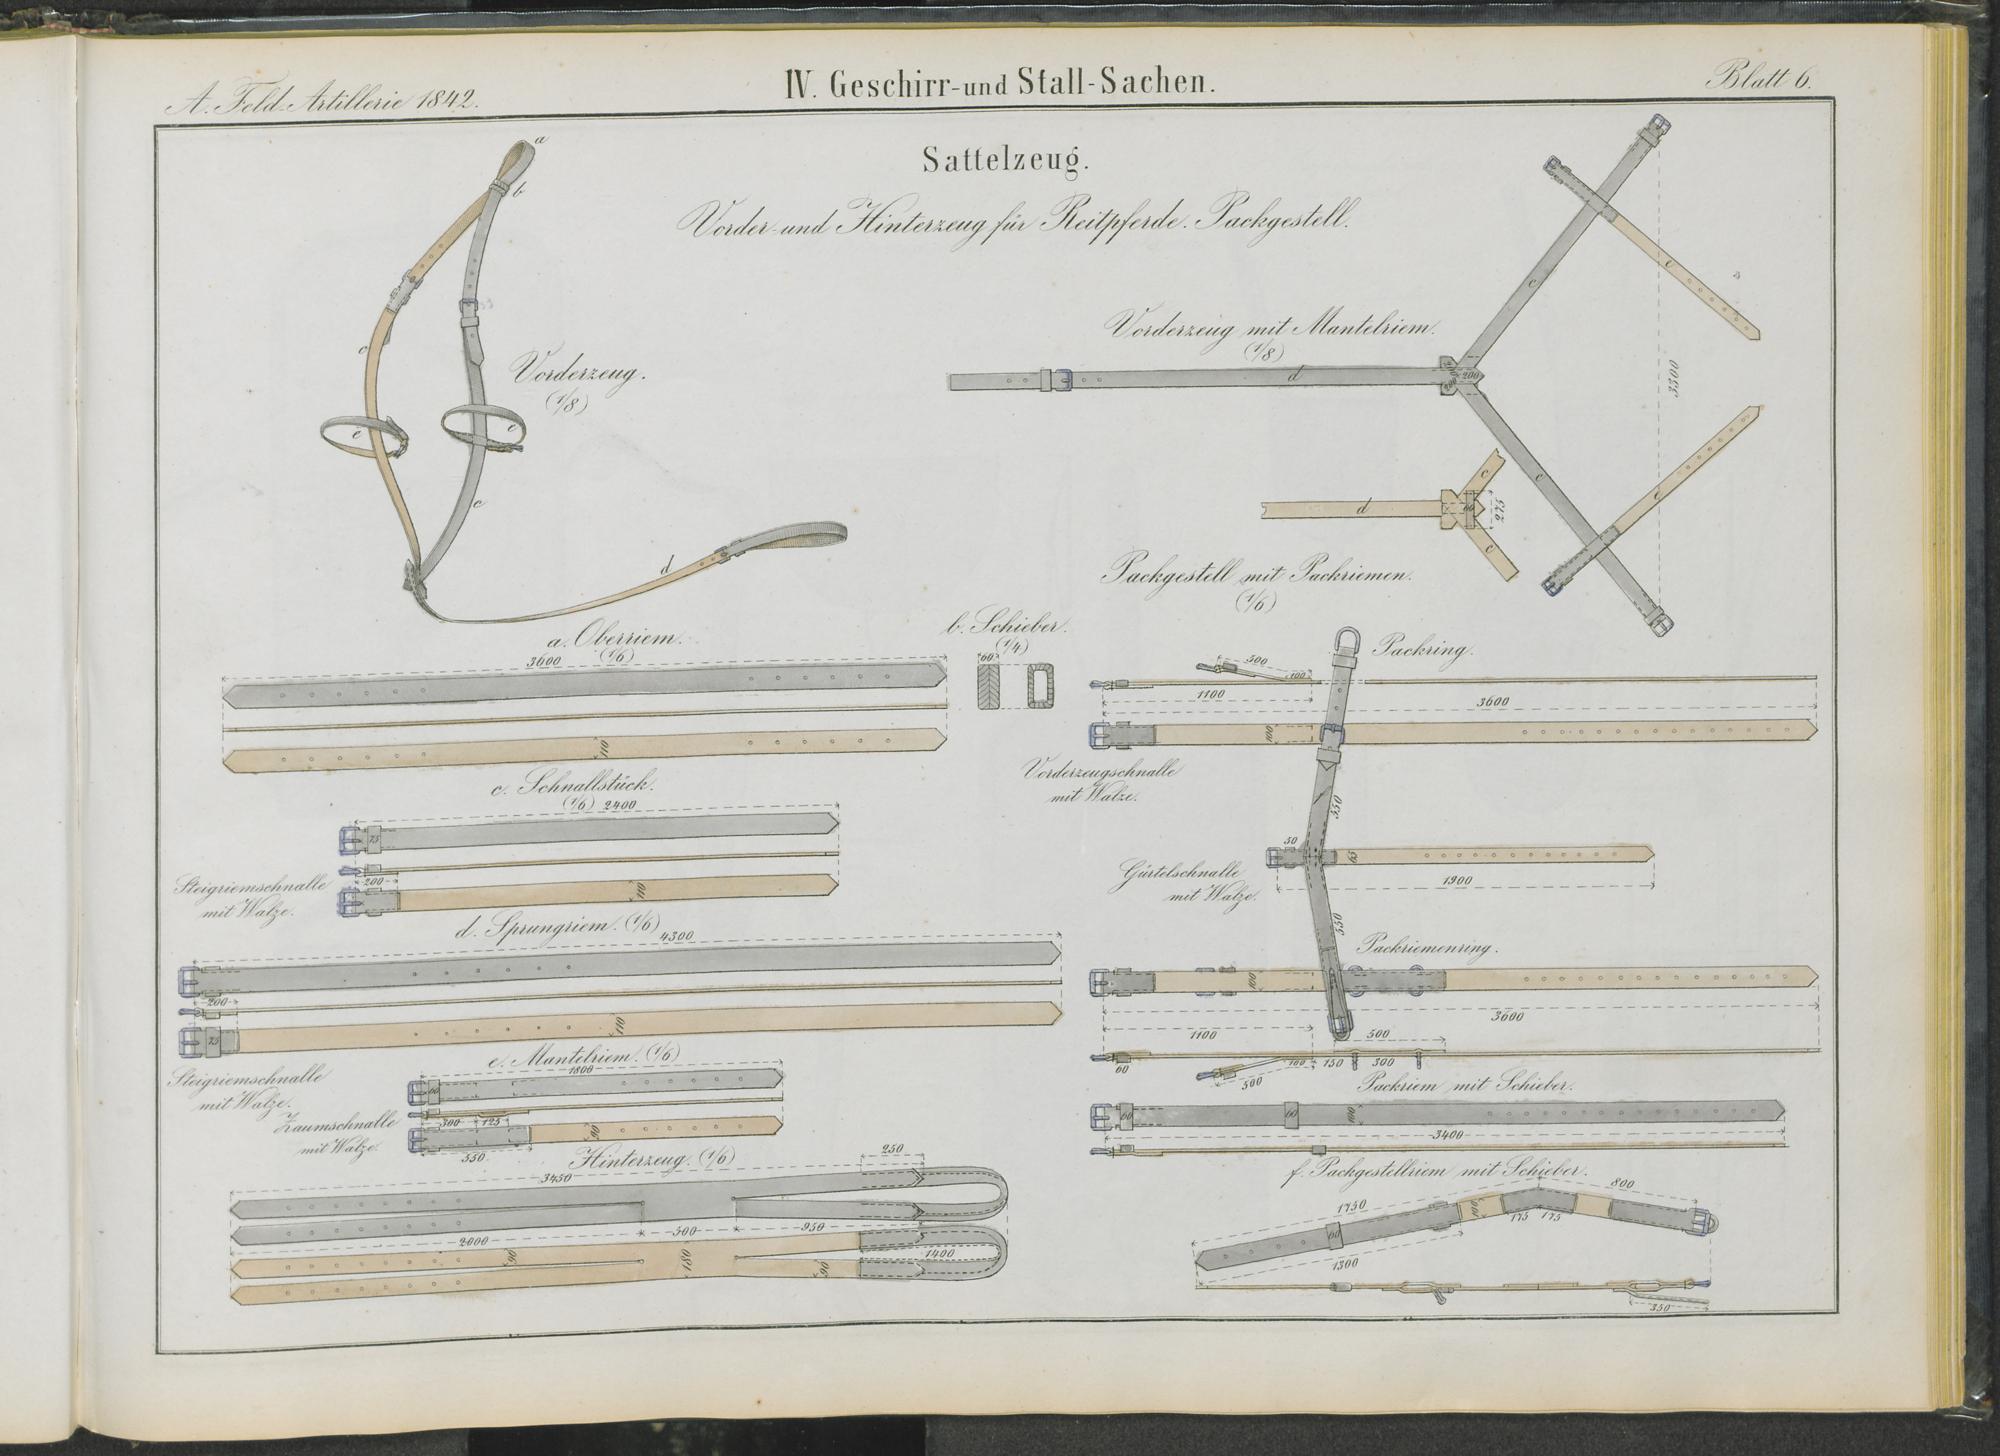 A. Feld-Artillerie 1842.
IV. Geschirr- und Stall-Sachen.
Blatt 6.
Sattelzeug.
Vorder- und Hinterzeug für Reitpferde. Packgestell.
a
b
c
c
e
e
d
Vorderzeug.
(1/8)
Vorderzeug mit Mantelriem.
(1/8)
d
c
c
e
e
200
3300
d
c
c
60
275
Packgestell mit Packriemen.
(1/6)
a. Oberriem.
(1/6)
3600
110
b. Schieber.
(1/4)
60
c. Schnallstück.
(1/6) 2400
75
200
110
Steigriemschnalle
mit Walze.
d. Sprungriem. (1/6)
4300
200
75
110
Steigriemschnalle
mit Walze.
e. Mantelriem. (1/6)
1800
60
300 125
90
550
Zaumschnalle
mit Walze.
Hinterzeug. (1/6)
250
3450
2000
500
950
90
180
90
1400
Packring.
500
100
1100
3600
100
Vorderzeugschnalle
mit Walze.
550
50
65
1900
Gürtelschnalle
mit Walze.
550
Packriemenring.
100
3600
1100
500
60
500
100
150
300
Packriem mit Schieber.
60
60
100
3400
f. Packgestellriem mit Schieber.
1750
800
100
175
175
60
1300
350